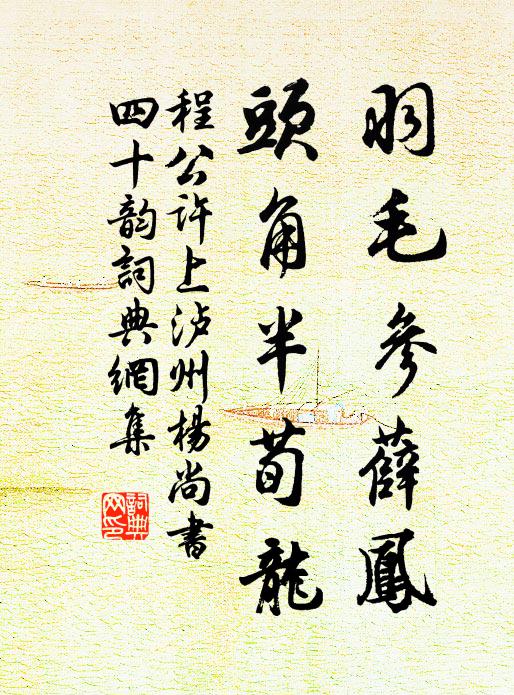 羽毛參薛鳳
頭角半荀龍
程公許上泸州楊尚書
四十韵詞典網集
詞典
网印